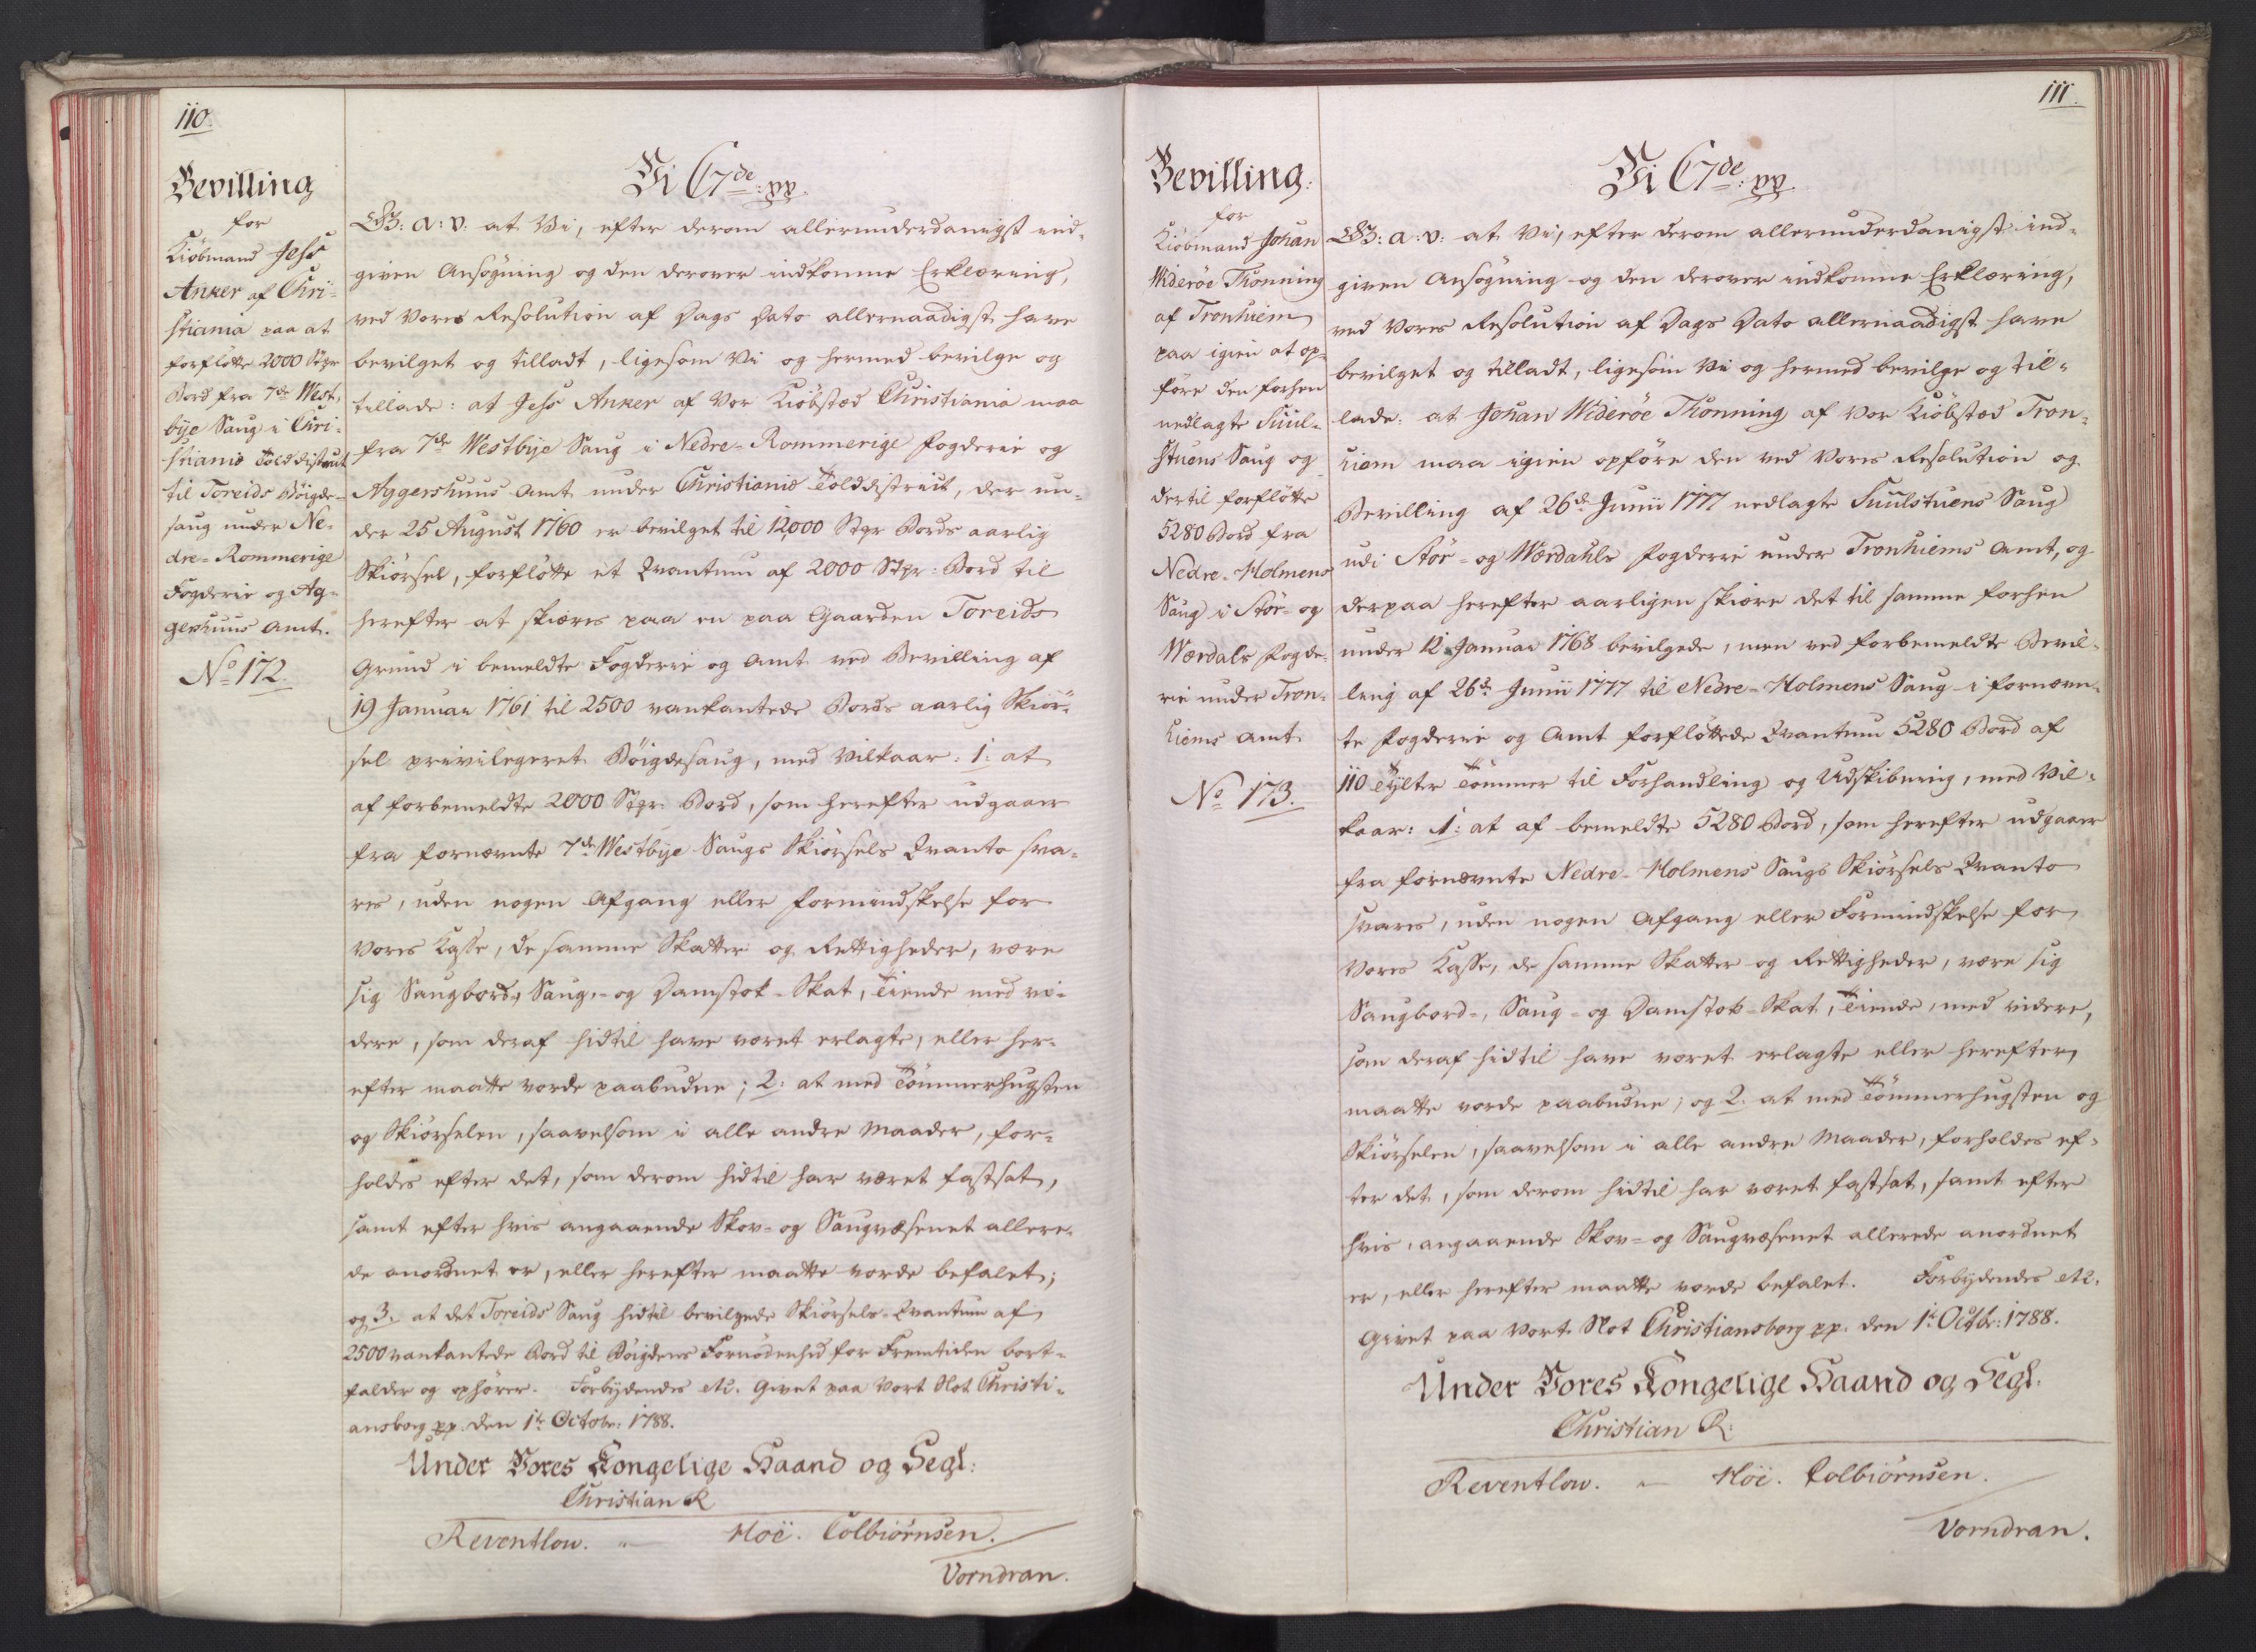 110.
Bevilling
for
Kiöbmand Jess
Anker af Chri-
stiania paa at
forflötte 2000 Stpr
Bord fra 7de West-
bye Saug i Chri-
stianiæ Tolddistrict
til Toreids Böigde-
saug under Ne-
dre-Rommerige
Fogderie og Ag-
gershuus Amt.
No 172.
Vi C7de: pp.
GB: A: V: at Vi, efter derom allerunderdanigst ind-
given Ansögning og den derover indkomne Erklæring,
ved Vores Resolution af Dags Dato allernaadigst have
bevilget og tilladt, ligesom Vi og hermed bevilge og
tillade: at Jess Anker af Vor Kiöbstæd Christiania maa
fra 7de Westbye Saug i Nedre-Rommerige Fogderie og
Aggershuus Amt under Christianiæ Tolddistrict, der un-
der 25 August 1760 er bevilget til 12,000 Stpr Bords aarlig
Skiörsel, forflötte et Qvantum af 2000 Stpr: Bord til
herefter at skiæres paa en paa Gaarden Toreids
Grund i bemeldte Fogderie og Amt ved Bevilling af
19 Januar 1761 til 2500 vankantede Bords aarlig Skiör-
sel privilegeret Böigdesaug, med Vilkaar: 1: at
af forbemeldte 2000 Stpr: Bord, som herefter udgaaer
fra fornævnte 7de Westbye Saugs Skiörsels Qvanto sva-
res, uden nogen Afgang eller Formindskelse for
Vores Kasse, de samme Skatter og Rettigheder, være
sig Saugbord-, Saug- og Damstok-Skat, Tiende med vi-
dere, som deraf hidtil have været erlagte, eller her-
efter maatte vorde paabudne; 2: at med Tömmerhugsten
og Skiörselen, saavelsom i alle andre Maader, for-
holdes efter det, som derom hidtil har været fastsat,
samt efter hvis angaaende Skov- og Saugvæsenet allere-
de anordnet er, eller herefter maatte vorde befalet;
og 3. at det Toreids Saug hidtil bevilgede Skiörsels-Qvantum af
2500 vankantede Bord til Böigdens Fornödenhed for Fremtiden bort-
falder og ophører. Forbydendes etc. Givet paa Vort Slot Christi-
ansborg pp. den 1te Octobr: 1788.
Under Vores Kongelige Haand og Segl:
Christian R
Reventlow. " Höe. Colbiörnsen.
Vorndran.
111.
Bevilling.
for
Kiöbmand Johan
Wideröe Thonning
af Tronhiem
paa igien at op-
före den forhen
nedlagte Suul-
stuens Saug og
dertil forflötte
5280 Bord fra
Nedre-Holmens
Saug i Stör- og
Wærdals Fogde-
rie under Tron-
hiems Amt.
No 173.
Vi C7de: pp.
GB: A: V: at Vi, efter derom allerunderdanigst ind-
given Ansögning og den derover indkomne Erklæring,
ved Vores Resolution af Dags Dato allernaadigst have
bevilget og tilladt, ligesom Vi og hermed bevilge og til-
lade: at Johan Wideröe Thonning af Vor Kiöbstæd Tron-
hiem maa igien opföre den ved Vores Resolution og
Bevilling af 26de Junii 1777 nedlagte Suulstuens Saug
udi Stör- og Wærdahls Fogderie under Tronhiems Amt, og
derpaa herefter aarligen skiære det til samme forhen
under 12 Januar 1768 bevilgede, men ved forbemeldte Bevil-
ling af 26de Junii 1777 til Nedre-Holmens Saug i fornævn-
te Fogderie og Amt forflöttede Qvantum 5280 Bord af
110 Tylter Tömmer til Forhandling og Udskibning, med Vil-
kaar: 1: at af bemeldte 5280 Bord, som herefter udgaaer
fra fornævnte Nedre-Holmens Saugs Skiörsels Qvanto
svares, uden nogen Afgang eller Formindskelse for
Vores Kasse, de samme Skatter og Rettigheder, være sig
Saugbord-, Saug- og Damstok-Skat, Tiende, med videre,
som deraf hidtil have været erlagte eller herefter
maatte vorde paabudne; og 2. at med Tömmerhugsten og
Skiörselen, saavelsom i alle andre Maader, forholdes ef-
ter det, som derom hidtil har været fastsat, samt efter
hvis, angaaende Skov- og Saugvæsenet allerede anordnet
er, eller herefter maatte vorde befalet. Forbydendes etc.
Givet paa Vort Slot Christiansborg pp. den 1te Octbr: 1788.
Under Vores Kongelige Haand og Segl.
Christian R.
Reventlow. " Höe. Colbiörnsen.
Vorndran.